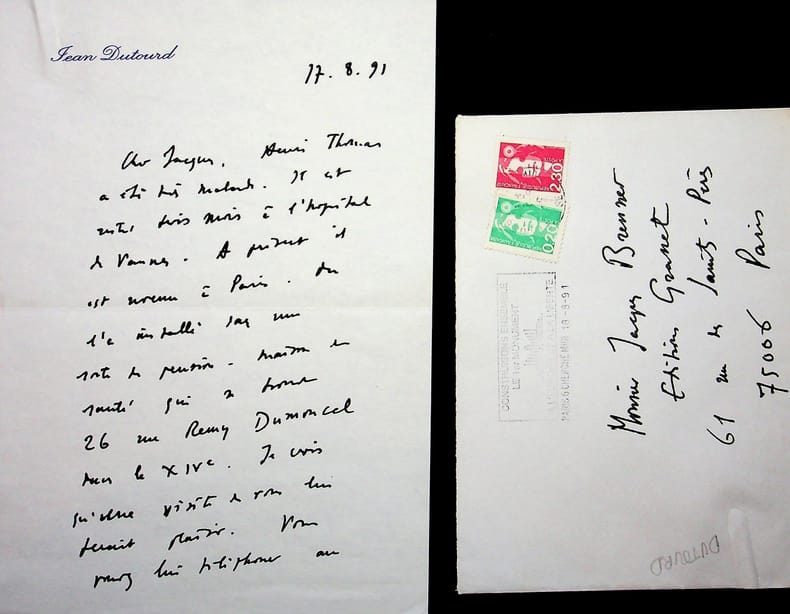 Jean Dutourd
17.8.91
Cher Jacques, Henri Thomas
a été très malade. Il est
resté trois mois à l'hôpital
de Vannes. A présent il
est revenu à Paris. On
l'a installé dans une
sorte de pension-maison de
santé qui se trouve
26 rue Remy Dumoncel
dans le XIVe. Je crois
qu'une visite de vous lui
ferait plaisir. Vous
pouvez lui téléphoner au
2.30
REPUBLIQUE FRANÇAISE
LA POSTE
0.20
REPUBLIQUE FRANÇAISE
CONSTRUISONS ENSEMBLE
LE 1er MONUMENT
PARIS 6 CHERCHE MIDI 19-8-91
Monsieur Jacques Brenner
Editions Grasset
61 rue des Saints-Pères
75006 Paris
DUTOURD